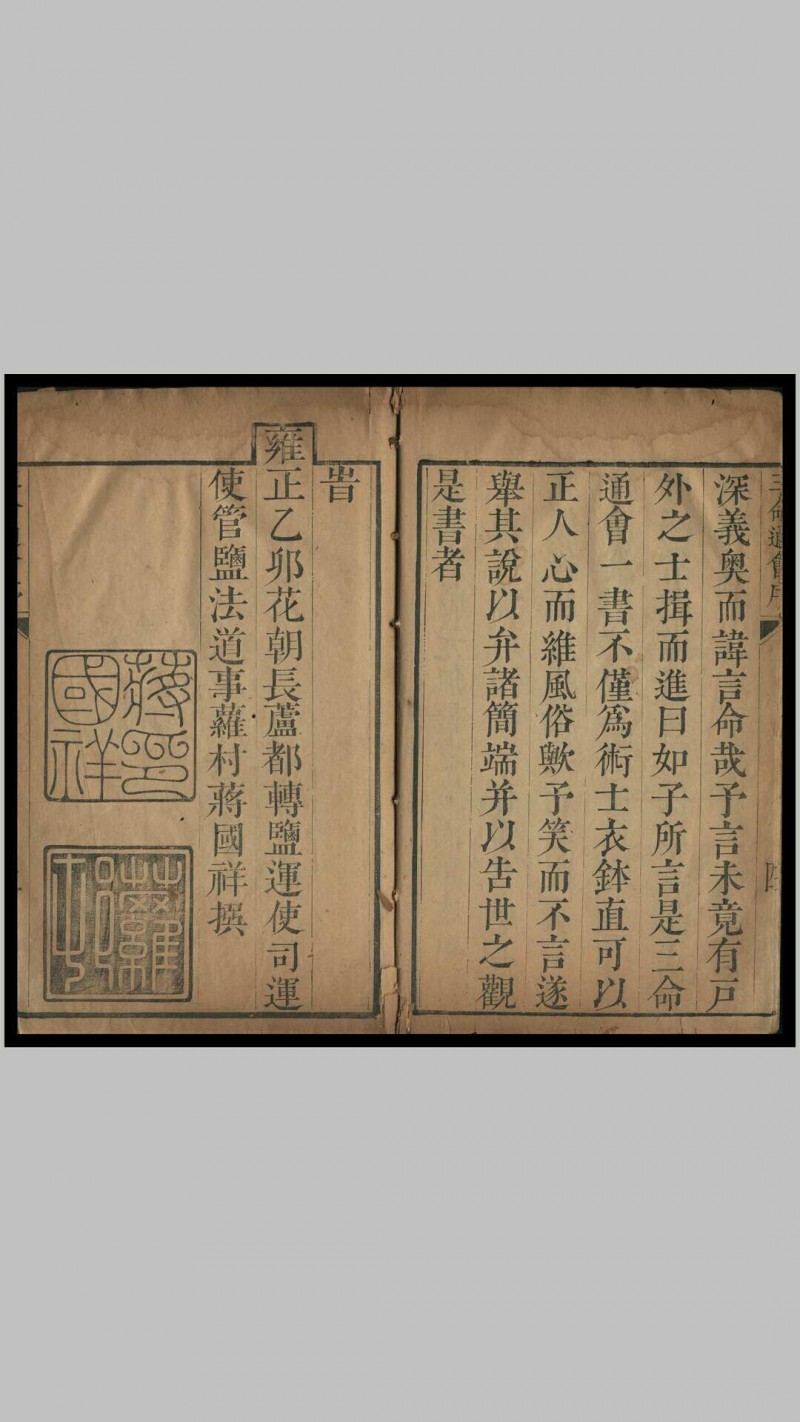 三命通會序
深義奧而諱言命哉予言未竟有戸
外之士揖而進曰如子所言是三命
通會一書不僅爲術士衣鉢直可以
正人心而維風俗歟予笑而不言遂
舉其說以弁諸簡端并以告世之觀
是書者
旹
雍正乙卯花朝長蘆都轉鹽運使司運
使管鹽法道事蘿村蔣國祥撰
蔣國祥印
蘿村